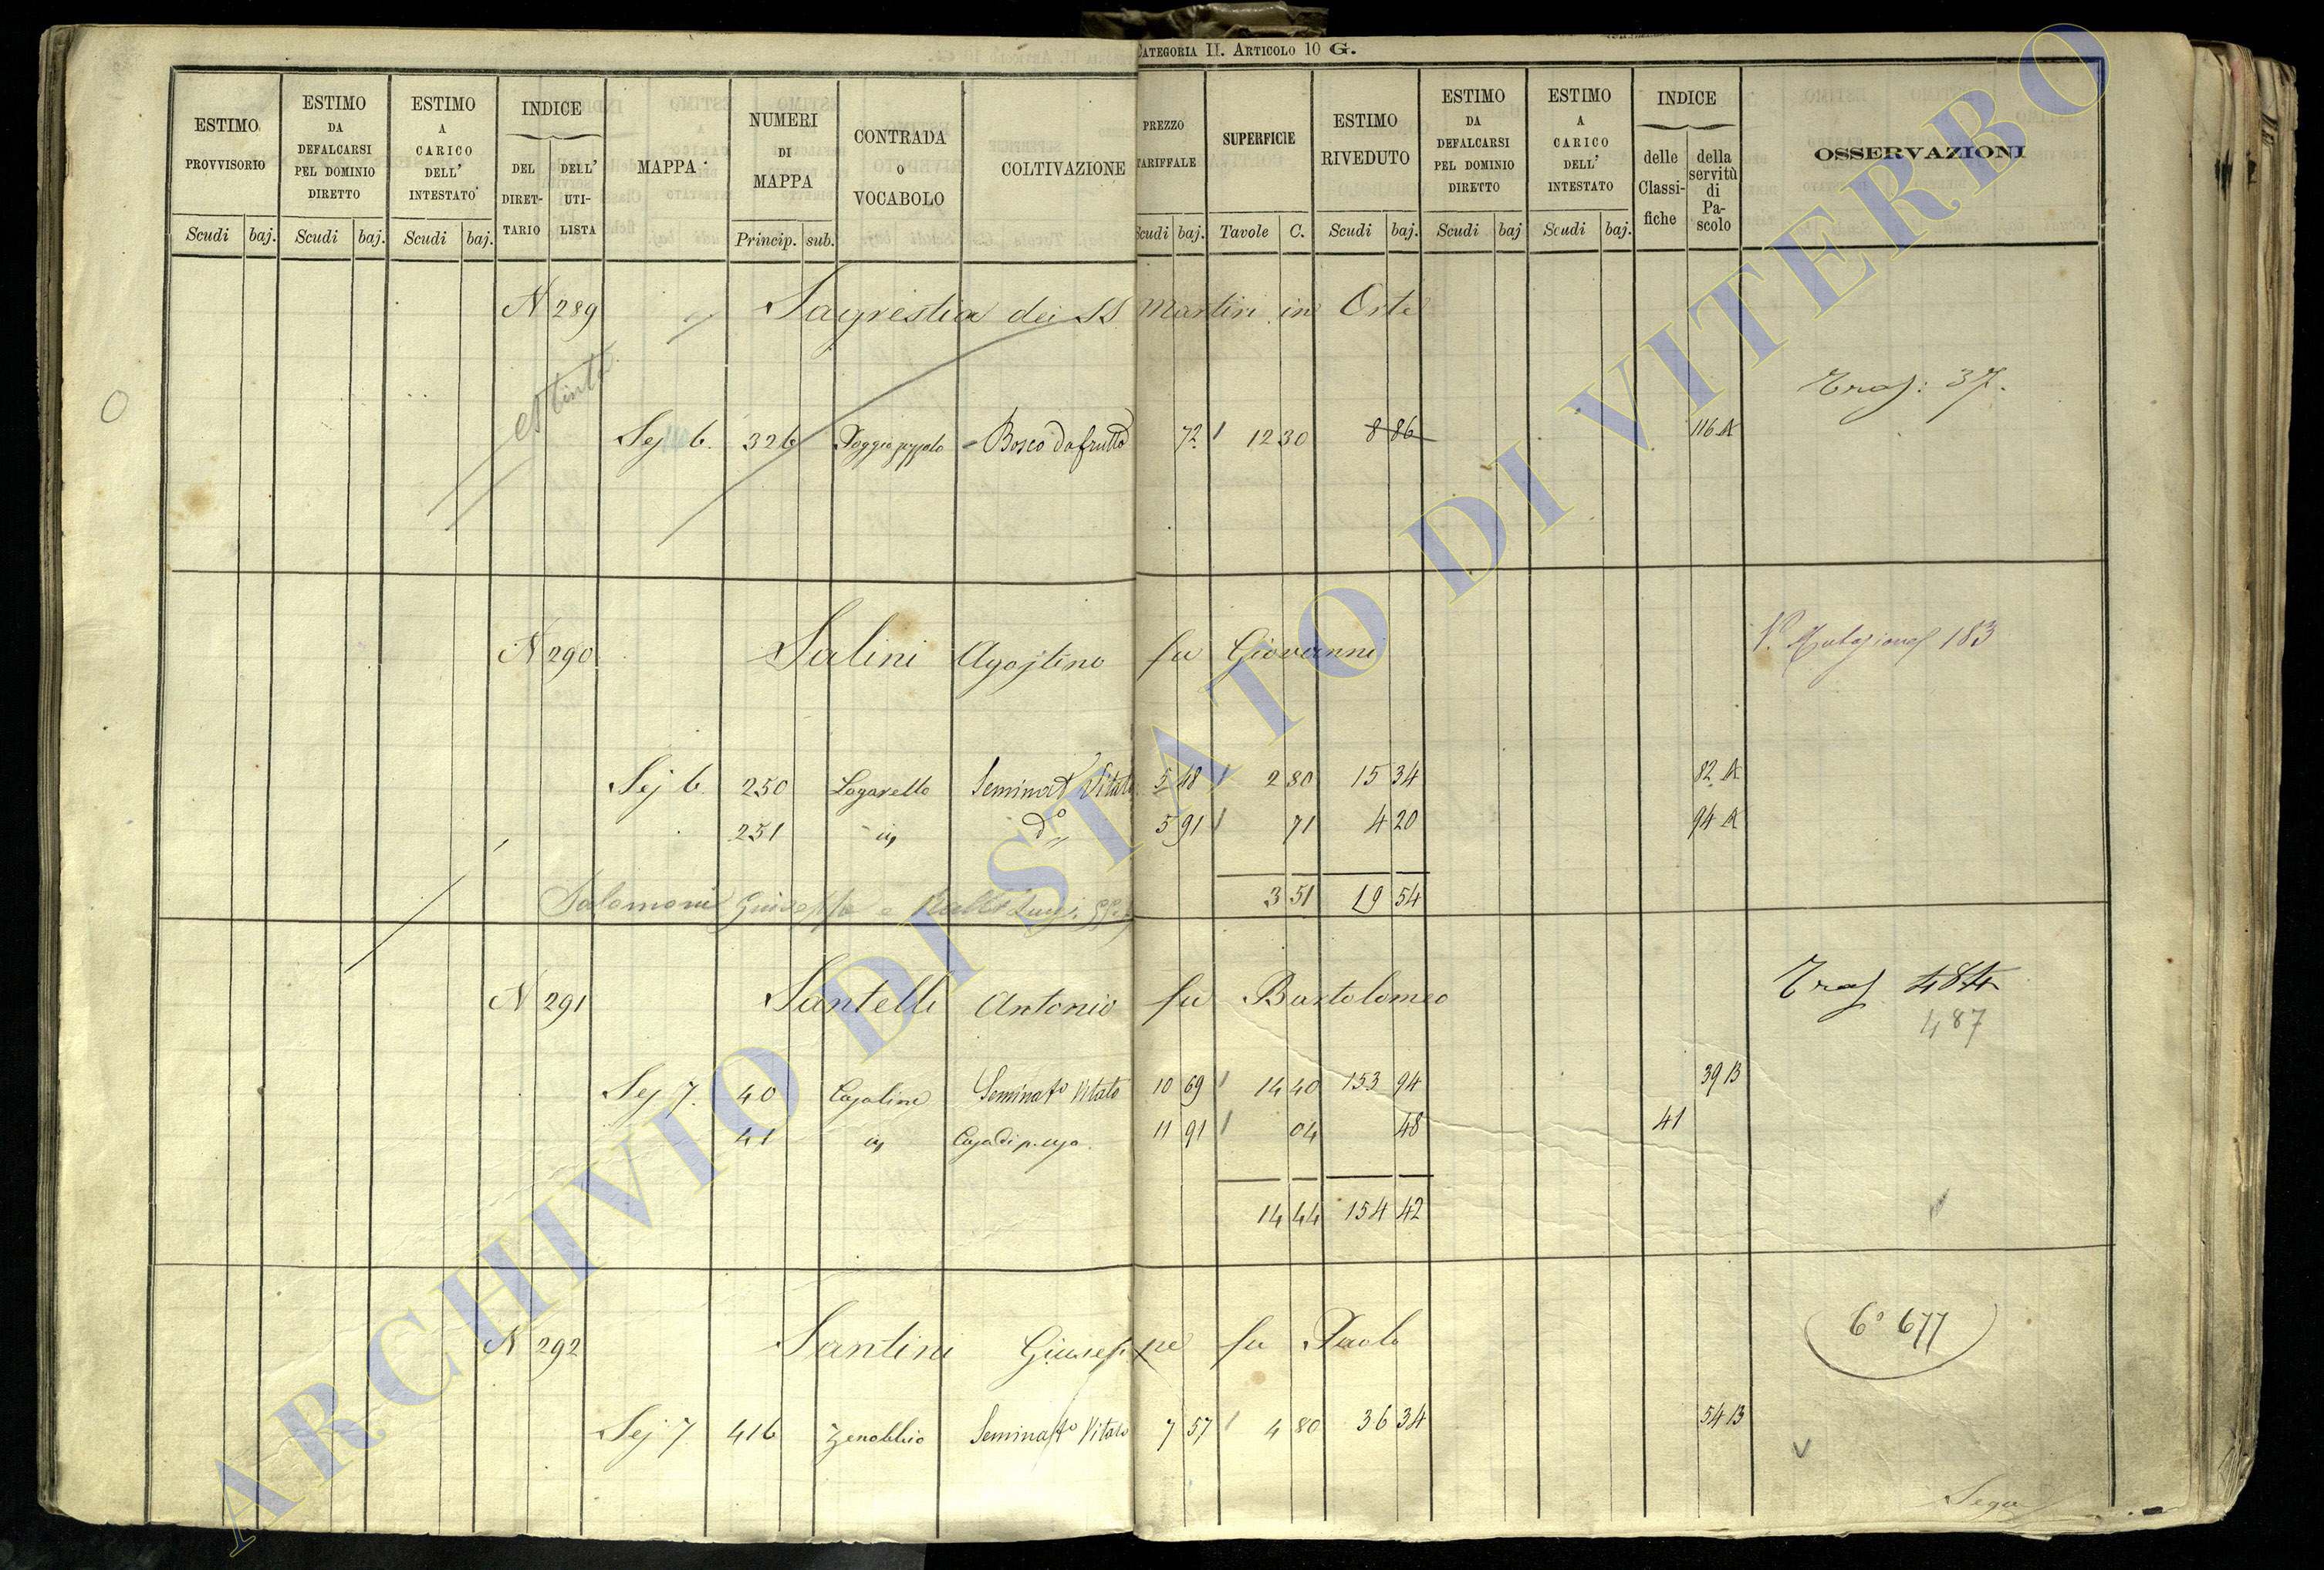 CATEGORIA II. ARTICOLO 10 G.
ESTIMO PROVVISORIO
ESTIMO DA DEFALCARSI PEL DOMINIO DIRETTO
ESTIMO A CARICO DELL' INTESTATO
INDICE
DEL DIRETTARIO
DELL' UTILISTA
MAPPA
NUMERI DI MAPPA
CONTRADA o VOCABOLO
COLTIVAZIONE
PREZZO TARIFFALE
SUPERFICIE
ESTIMO RIVEDUTO
ESTIMO DA DEFALCARSI PEL DOMINIO DIRETTO
ESTIMO A CARICO DELL' INTESTATO
INDICE
delle Classifiche
della servitù di Pascolo
OSSERVAZIONI
Scudi baj. Scudi baj. Scudi baj. Princip. sub. Scudi baj. Tavole C. Scudi baj. Scudi baj Scudi baj.
N 289 Sagrestia dei SS Martiri in Orte
estinta
Tras: 37.
Sez 6. 326 Bosco da frutto 72 12 30 8 86 116 A
N 290 Salini Agostino fu Giovanni
183
Sez 6. 250 Logarello Seminat Vitato 5 48 2 80 15 34 82 A
251 id do 5 91 71 4 20 94 A
3 51 19 54
Salomoni Giuseppe e Luigi
N 291 Santelli Antonio fu Bartolomeo
Tras 484
487
Sez 7. 40 Casaline Seminato Vitato 10 69 14 40 153 94 39 B
41 id Casa di p. uso. 11 91 04 48 41
14 44 154 42
N 292 Santini Giuseppe fu Paolo
6° 677
Sez 7 416 Zenobbio Seminato Vitato 7 57 4 80 36 34 54 B
Segue
ARCHIVIO DI STATO DI VITERBO